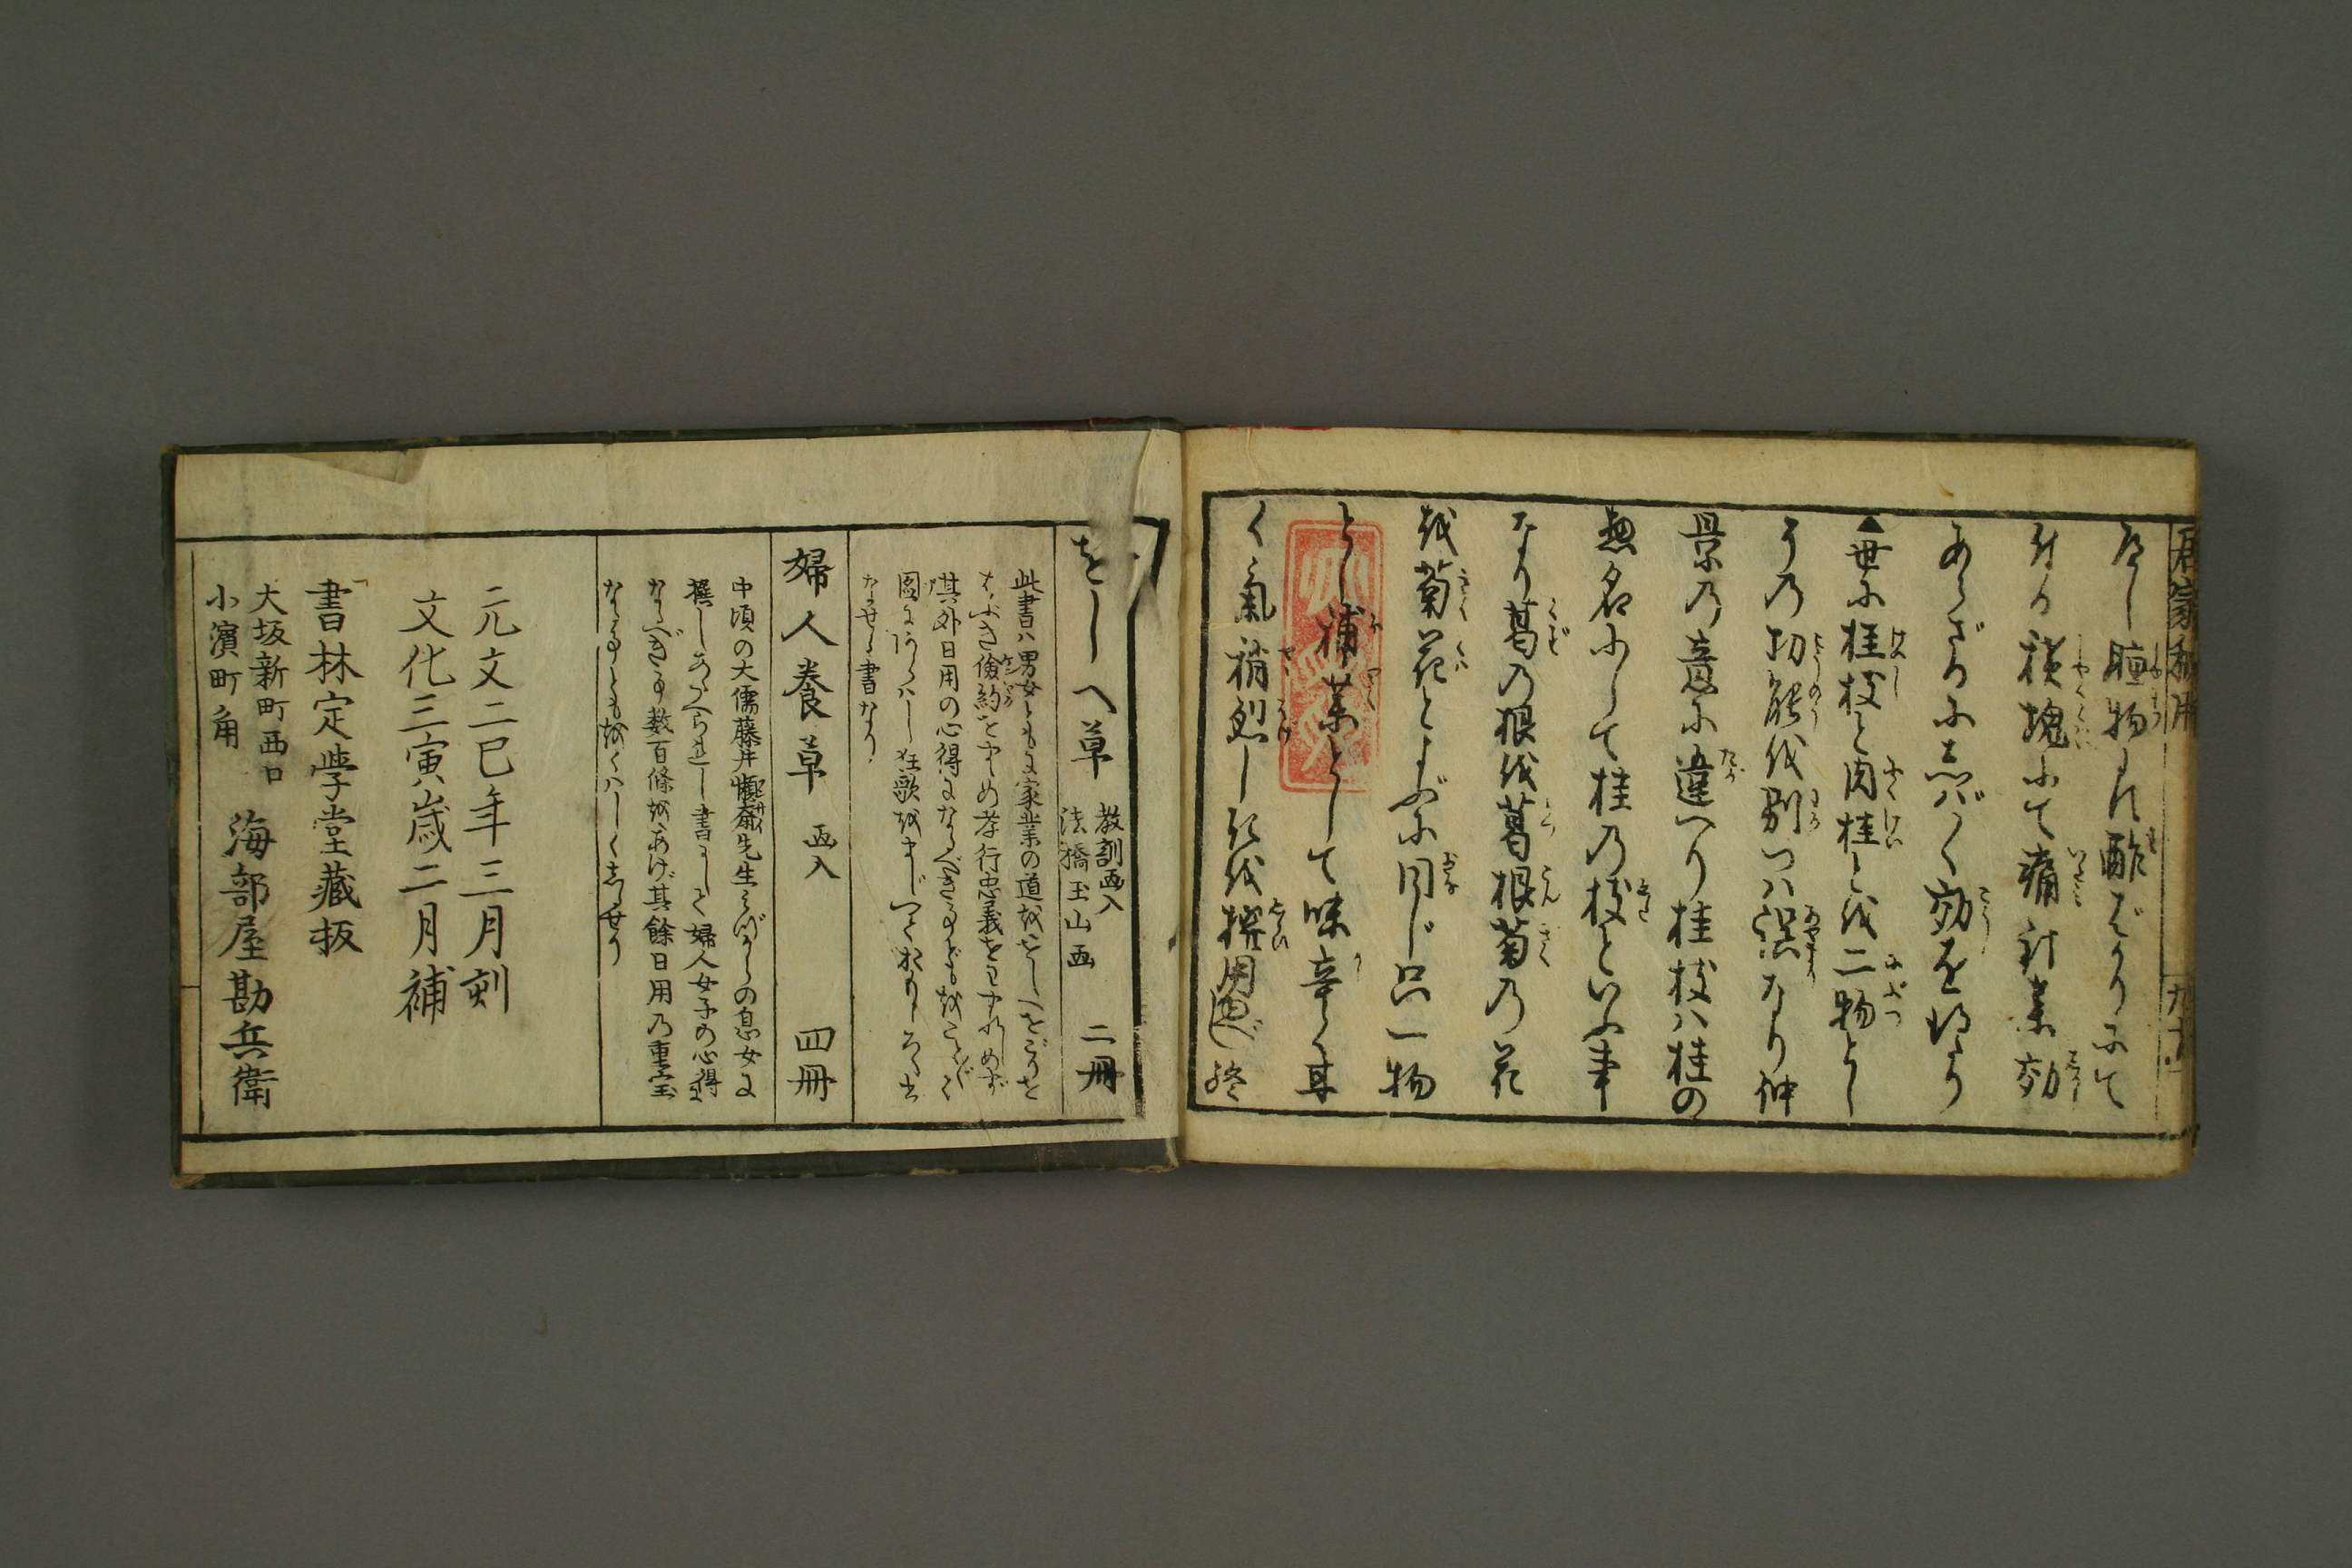 なし腫物は酢ばかりにて
積塊にて痛
あらざるにしばらく効を
▲世に桂枝と肉桂とを二物とし
その功能を別つハ誤なり仲
景の意に違へり桂枝ハ桂の
惣名にして桂の枝といふ事
なり葛の根を葛根菊の花
を菊花とよぶに同じ只一物
とし補薬として味辛く甘
く氣稍烈しきを撰用ゆべし 終
をしへ草 教訓画入 法橋玉山画 二冊
此書ハ男女ともに家業の道をおしへをごりを
はぶき倹約をすゝめ孝行忠義をわすれしめず
其外日用の心得になるべき事どもをことごとく
圖にあらハし狂歌をまじへて
なさせる書なり
婦人養草 画入 四冊
中頃の大儒藤井懶斎先生みづからの息女に
撰しあたへられし書にして婦人女子の心得に
なるべき事数百條をあげ其餘日用の重宝
なる事どもをくハしくしるせり
元文二巳年三月刻
文化三寅歳二月補
書林定學堂藏板
大坂新町西口
小濱町角
海部屋勘兵衛